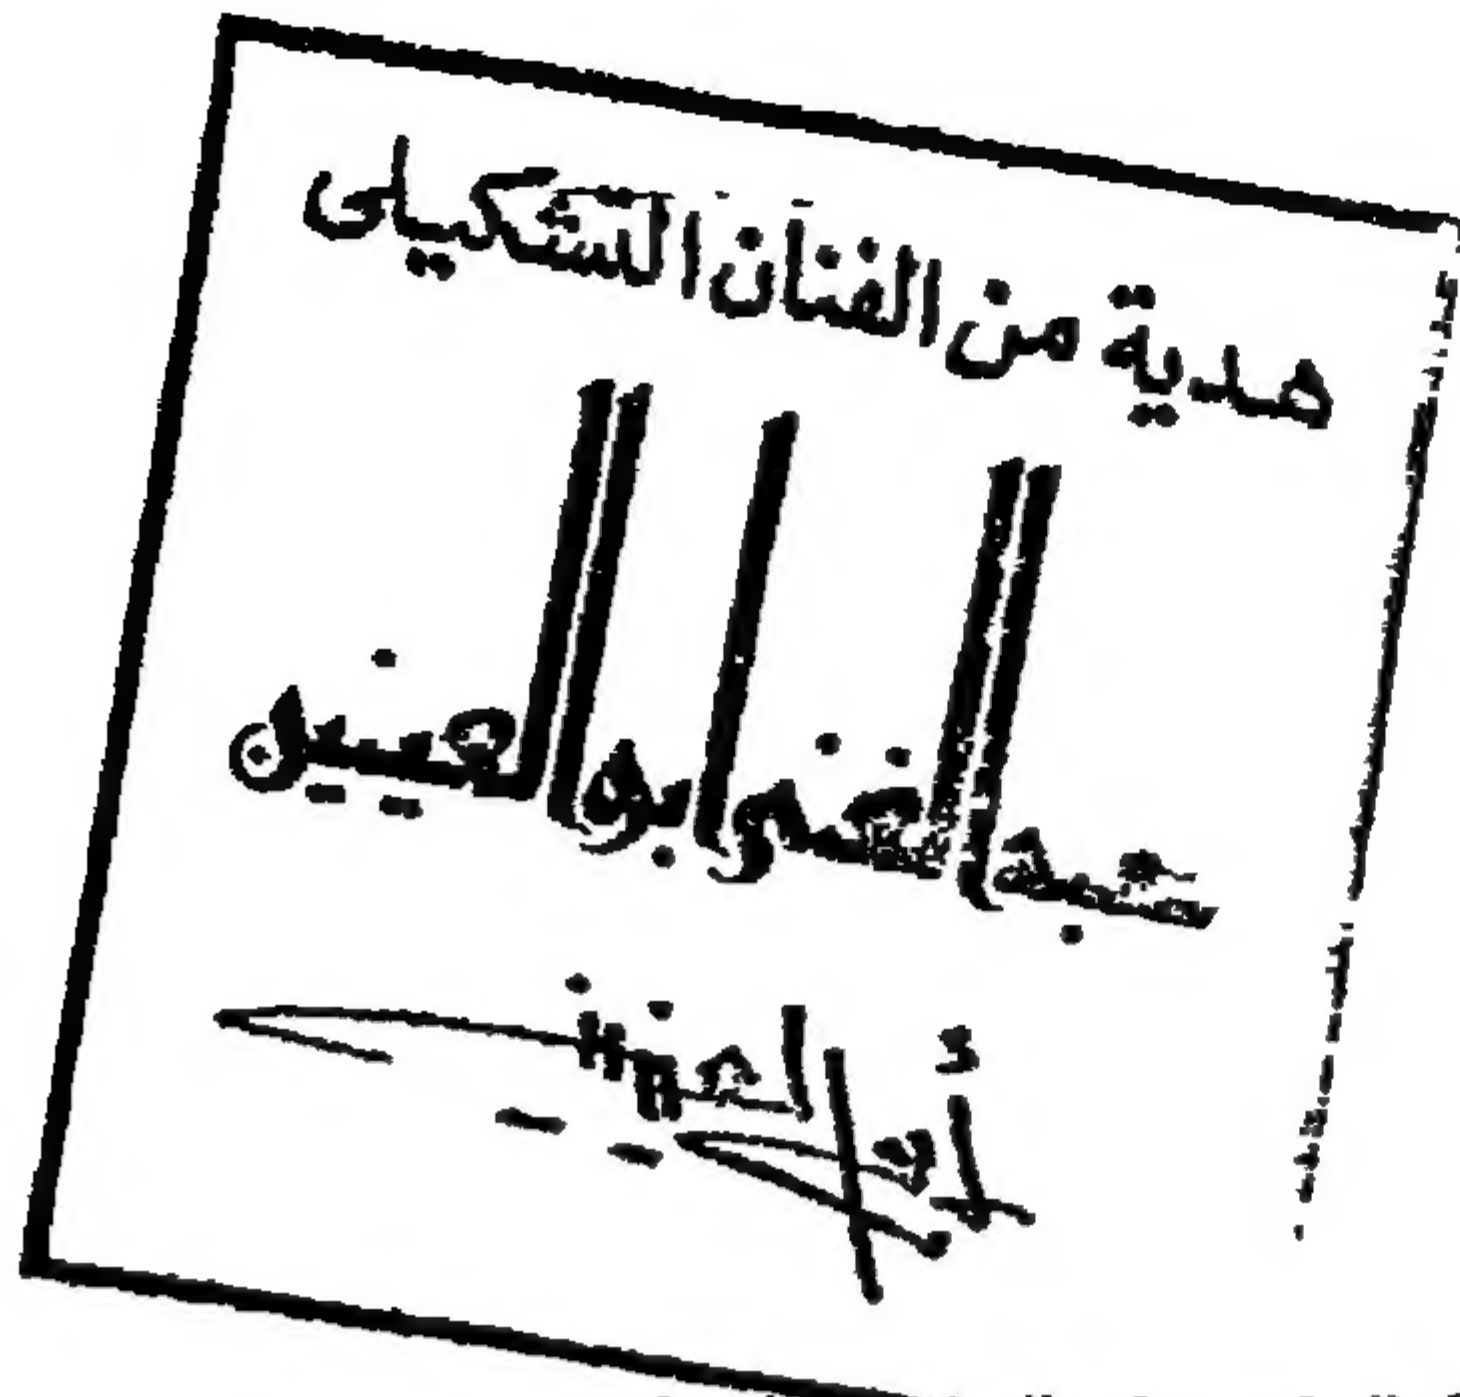 هدية من الفنان التشكيلى
عبد الغنى ابو العينين
أبو العينين